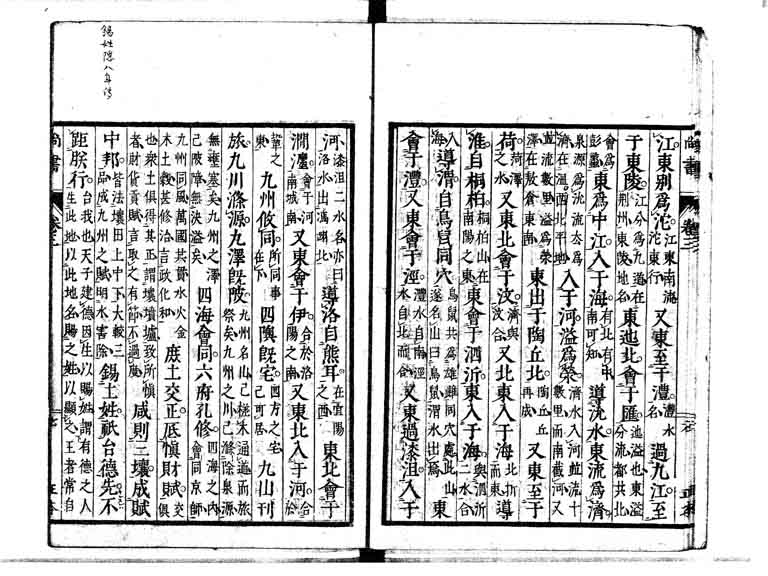 尚書 卷三
江東別爲沱江東南流沱東行又東至于澧澧水名過九江至
于東陵江分爲九道在荊州東陵地名東迆北會于匯迆溢也東溢分流都共北
會爲彭蠡東爲中江入于海有北有中南可知導沇水東流爲濟
泉源爲沇流去爲濟在溫西北平地入于河溢爲滎濟水入河並流十數里而南截河又
並流數里溢爲滎澤在敖倉東南東出于陶丘北陶丘丘再成又東至于
荷菏澤之水又東北會于汶濟與汶合又北東入于海北折而東導
淮自桐柏桐柏山在南陽之東東會于泗沂東入于海與泗沂二水合
入海導渭自鳥鼠同穴鳥鼠共爲雌雄同穴處此山遂名山曰鳥鼠渭水出焉東
會于澧又東會于涇澧水自南涇水自北而合又東過漆沮入于
河漆沮二水名亦曰洛水出馮翊北導洛自熊耳在宜陽之西東北會于
澗瀍會于河南城南又東會于伊合於洛陽之南又東北入于河合於
鞏之東九州攸同所同事在下四隩旣宅四方之宅已可居九山刊
旅九川滌源九澤旣陂九州名山已槎木通道而旅祭矣九州之川已滌除泉源
無壅塞矣九州之澤已陂障無決溢矣四海會同六府孔修四海之內會同京師
九州同風萬國共貫水火金木土穀甚修治言政化和庶土交正厎愼財賦交俱
也衆土俱得其正謂壤墳壚致所愼者財貨貢賦言取之有節不過度咸則三壤成賦
中邦皆法壤田上中下大較三品成九州之賦明水害除錫土姓祗台德先不
距朕行台我也天子建德因生以賜姓謂有德之人生此地以此地名賜之姓以顯之王者常自
尚書 卷三
錫姓隱八年傳